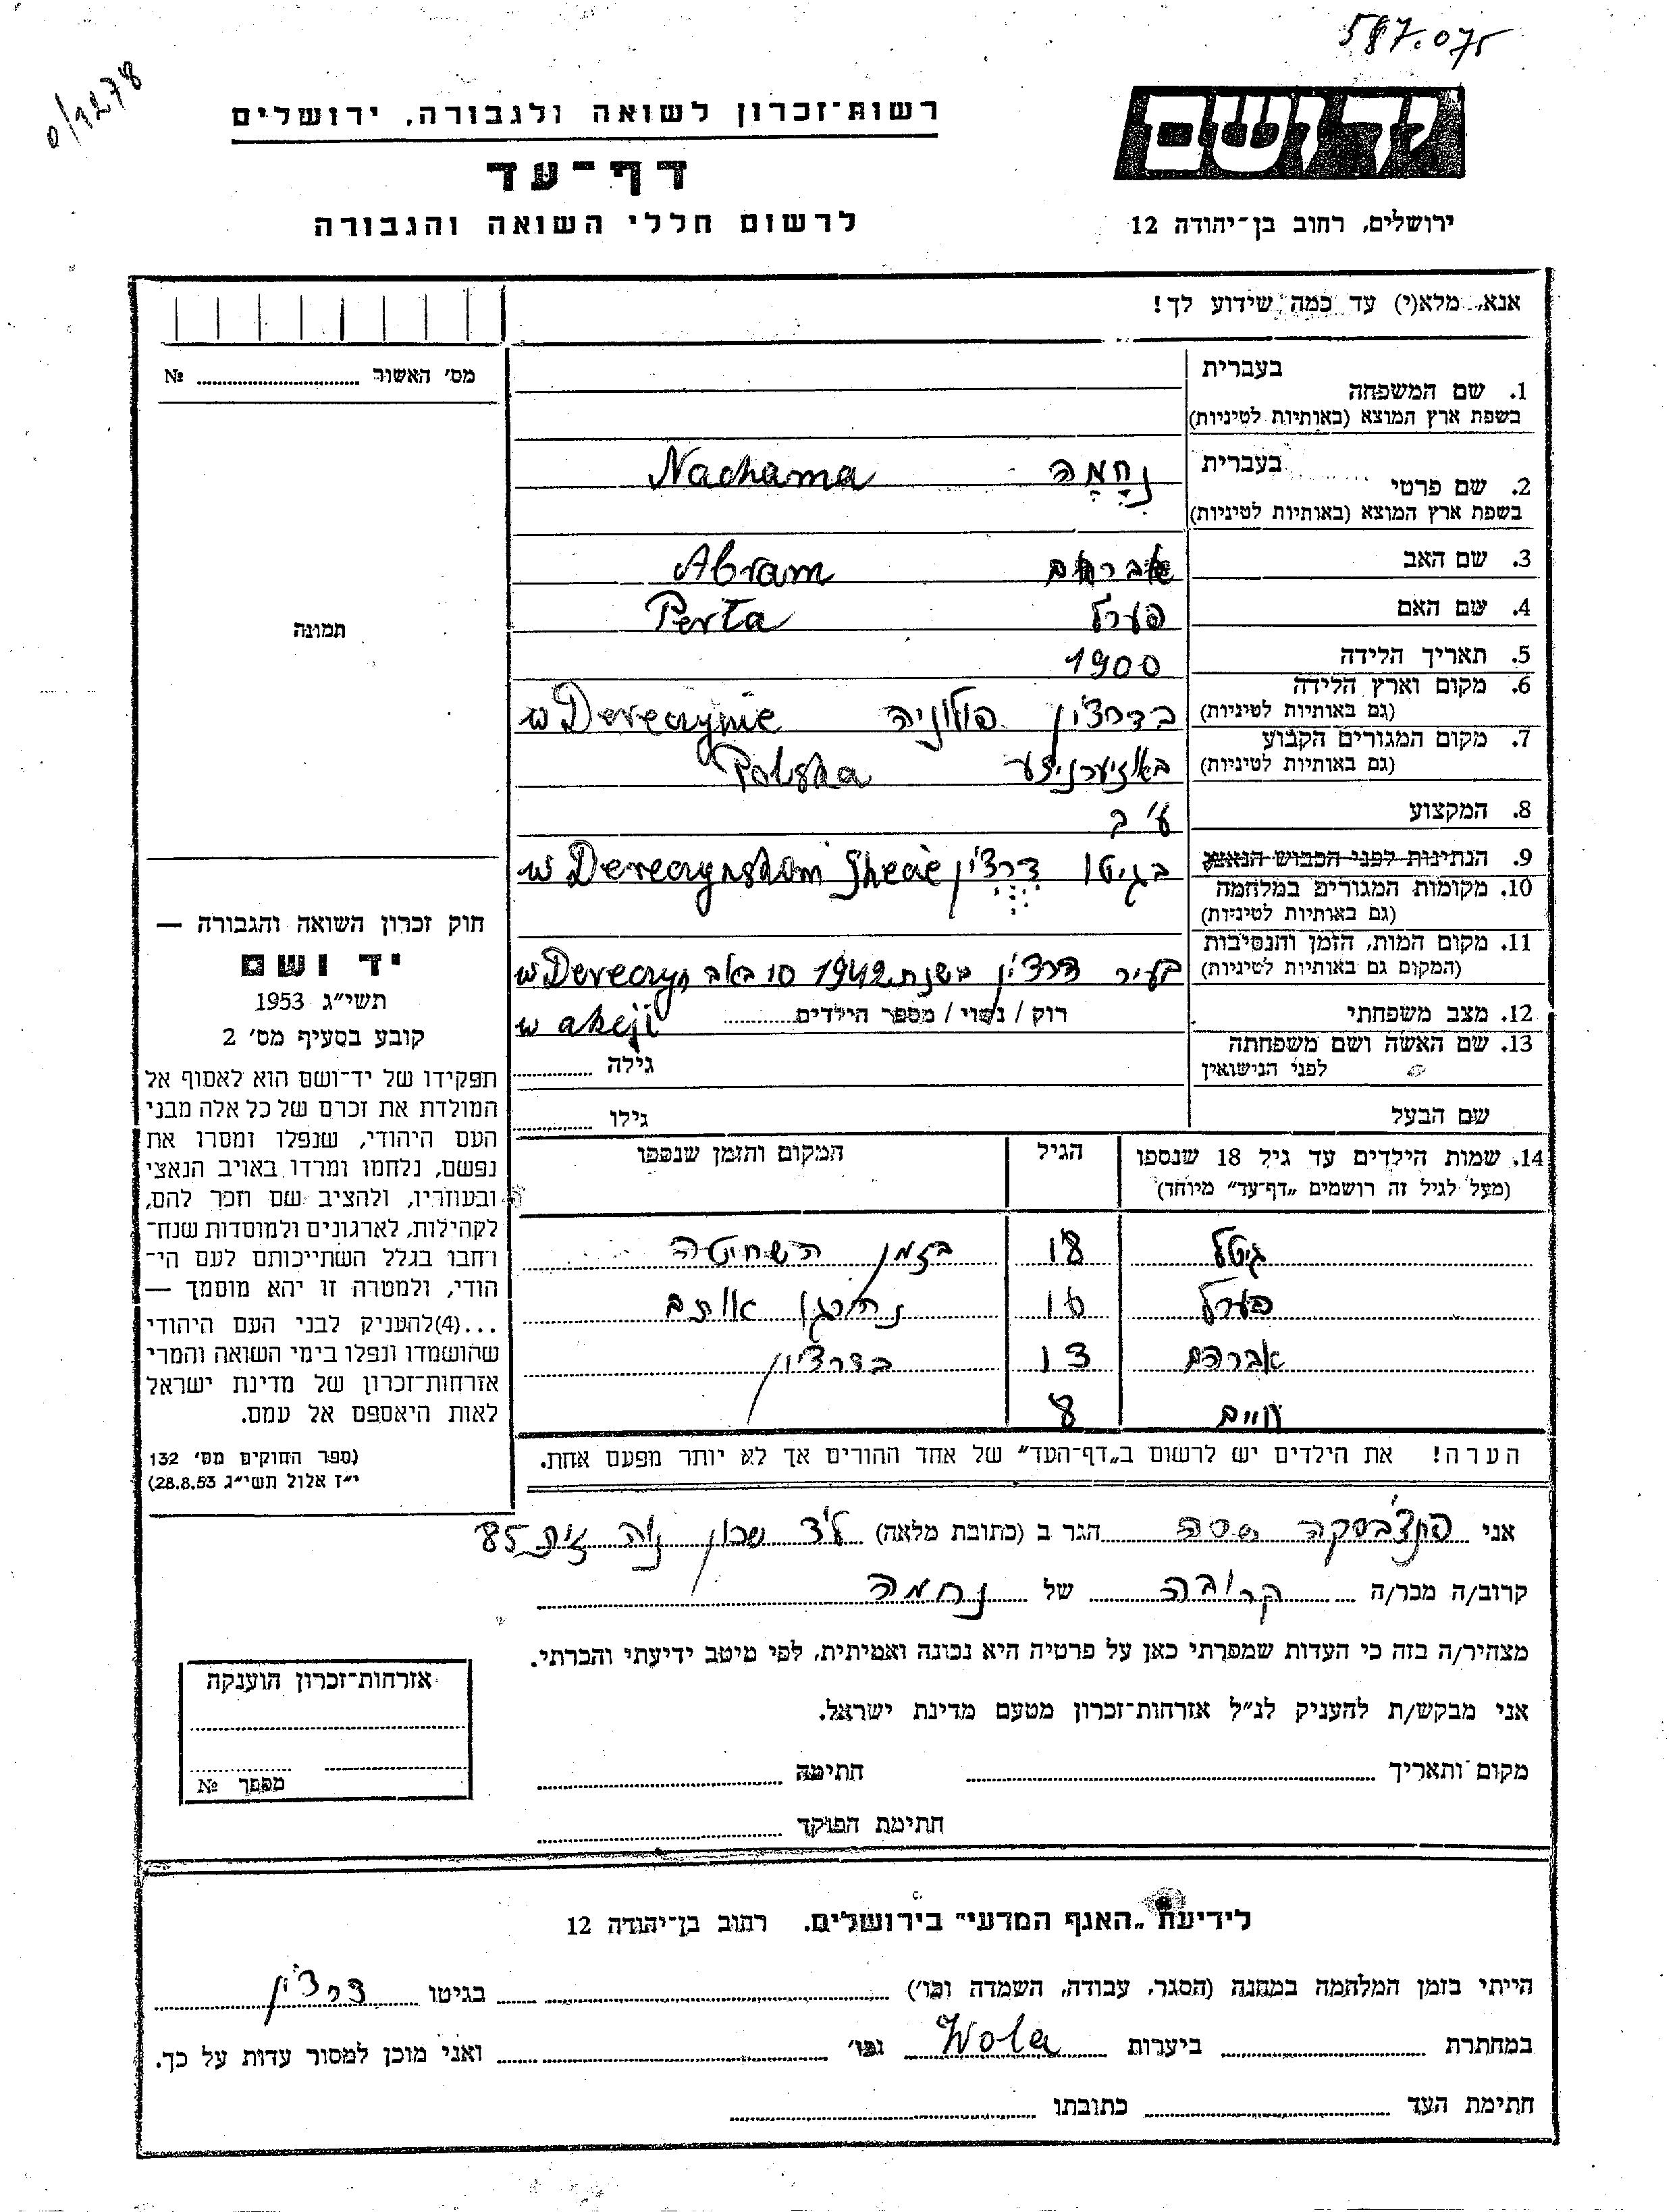 587.075
0/3278
רשות־זכרון לשואה ולגבורה, ירושלים
יד ושם
דף־עד
ירושלים, רחוב בן־יהודה 12
לרשום חללי השואה והגבורה
אנא, מלא(י) עד כמה שידוע לך!
מס׳ האשור № 
תמונה
בעברית
1. שם המשפחה
בשפת ארץ המוצא (באותיות לטיניות)
בעברית
2. שם פרטי
בשפת ארץ המוצא (באותיות לטיניות)
נֶחָמָה Nachama
3. שם האב אברהם Abram
4. שם האם פערל Perła
5. תאריך הלידה 1900
6. מקום וארץ הלידה
(גם באותיות לטיניות)
בדרצ׳ין פולוניה w Dereczynie
7. מקום המגורים הקבוע
(גם באותיות לטיניות)
באוזיערניצע Polska
8. המקצוע ע׳ ב
9. הנתינות לפני הכבוש הנאצי
10. מקומות המגורים במלחמה
(גם באותיות לטיניות)
בגיטו דרצ׳ין w Dereczynskam Ghecie
11. מקום המות, הזמן והנסיבות
(המקום גם באותיות לטיניות)
בעיר דרצ׳ין בשנת 1942 10 באב w Dereczyn
w akcji
12. מצב משפחתי רוק / נשוי / מספר הילדים
13. שם האשה ושם משפחתה
לפני הנישואין
גילה
שם הבעל גילו
14. שמות הילדים עד גיל 18 שנספו
(מעל לגיל זה רושמים „דף־עד” מיוחד)
הגיל
המקום והזמן שנספו
גיטל 18 בזמן השחיטה
פערל 16 נהרגן אותם
אברהם 13 בדרצ׳ין
חיים 8
הערה! את הילדים יש לרשום ב„דף־העד” של אחד ההורים אך לא יותר מפעם אחת.
חוק זכרון השואה והגבורה —
יד ושם
תשי״ג 1953
קובע בסעיף מס׳ 2
תפקידו של יד־ושם הוא לאסוף אל
המולדת את זכרם של כל אלה מבני
העם היהודי, שנפלו ומסרו את
נפשם, נלחמו ומרדו באויב הנאצי
ובעוזריו, ולהציב שם וזכר להם,
לקהילות, לארגונים ולמוסדות שנח־
רחבו בגלל השתייכותם לעם הי־
הודי, ולמטרה זו יהא מוסמך —
...(4)להעניק לבני העם היהודי
שהושמדו ונפלו בימי השואה והמרי
אזרחות־זכרון של מדינת ישראל
לאות היאספם אל עמם.
(ספר החוקים מס׳ 132
י״ז אלול תשי״ג 28.8.53)
אני הגר ב (כתובת מלאה) שכון נוה זית 85
קרוב/ה מכר/ה קרובה של נחמה
מצהיר/ה בזה כי העדות שמסרתי כאן על פרטיה היא נכונה ואמיתית, לפי מיטב ידיעתי והכרתי.
אני מבקש/ת להעניק לנ״ל אזרחות־זכרון מטעם מדינת ישראל.
מקום ותאריך חתימה
חתימת הפוקד
אזרחות־זכרון הוענקה
מספר №
לידיעת „האגף המדעי״ בירושלים, רחוב בן־יהודה 12
הייתי בזמן המלחמה במחנה (הסגר, עבודה, השמדה וכו׳) בגיטו דרצ׳ין
במחתרת ביערות Wola וכו׳ ואני מוכן למסור עדות על כך.
חתימת העד כתובתו